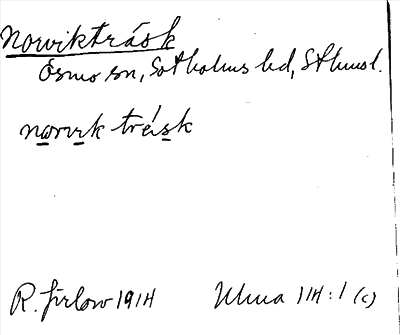 Norviktråsk
Ösmo sn, Sotholms hd, Sthmsl.
norvik tråsk
R. Jirlow 1914 Ulma 114:1 (c)